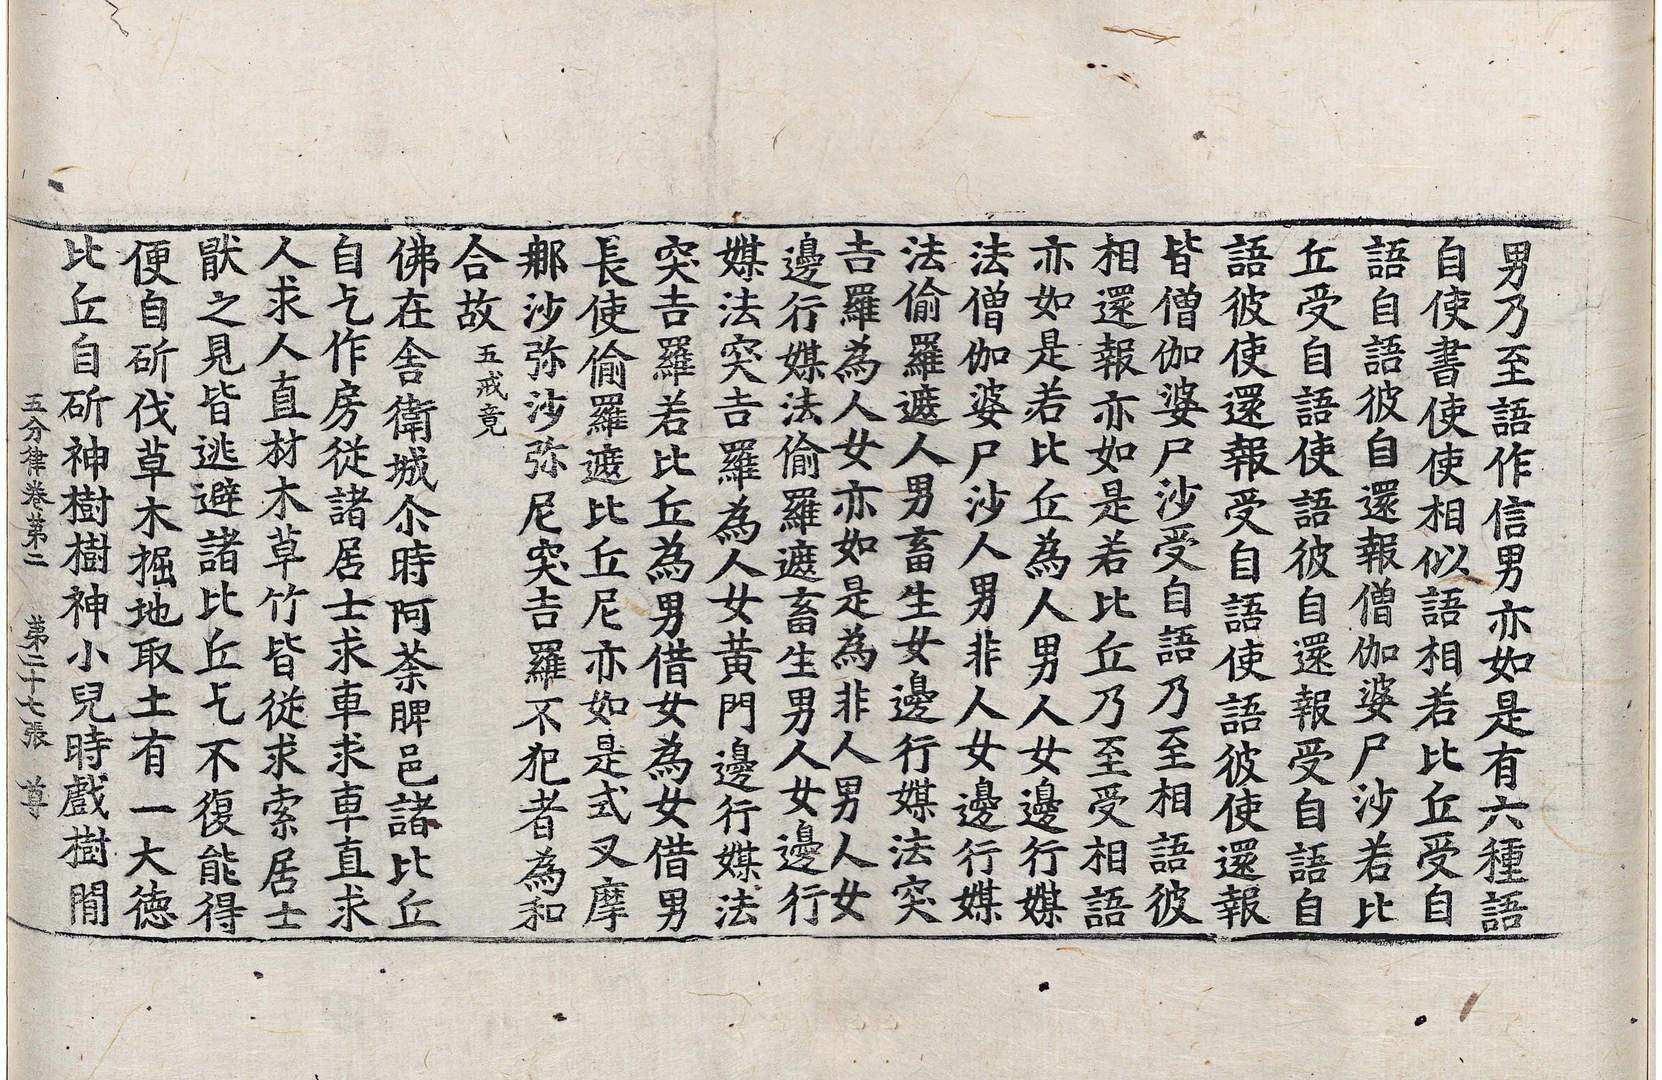 男乃至語作信男亦如是有六種語
自使書使使相似語相若比丘受自
語自語彼自還報僧伽婆尸沙若比
丘受自語使語彼自還報受自語自
語彼使還報受自語使語彼使還報
皆僧伽婆尸沙受自語乃至相語彼
相還報亦如是若比丘乃至受相語
亦如是若比丘為人男人女邊行媒
法僧伽婆尸沙人男非人女邊行媒
法偷羅遮人男畜生女邊行媒法突
吉羅為人女亦如是為非人男人女
邊行媒法偷羅遮畜生男人女邊行
媒法突吉羅為人女黃門邊行媒法
突吉羅若比丘為男借女為女借男
長使偷羅遮比丘尼亦如是式叉摩
那沙弥沙弥尼突吉羅不犯者為和
合故 五戒竟
佛在舍衛城尒時阿荼脾邑諸比丘
自乞作房從諸居士求車求車直求
人求人直材木草竹皆從求索居士
猒之見皆逃避諸比丘乞不復能得
便自斫伐草木掘地取土有一大德
比丘自斫神樹樹神小兒時戲樹閒
五分律卷第二 第二十七張 尊